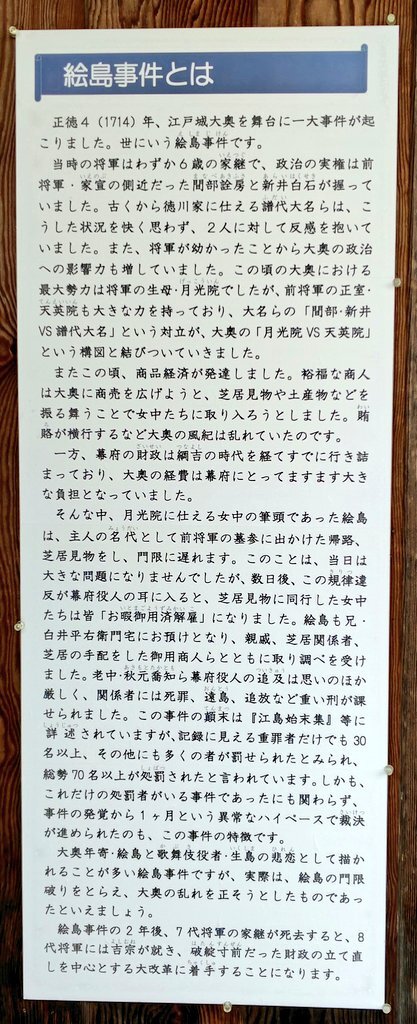 絵島事件とは
正徳4（1714）年、江戸城大奥を舞台に一大事件が起
こりました。世にいう絵島事件です。
当時の将軍はわずか6歳の家継で、政治の実権は前
将軍・家宣の側近だった間部詮房と新井白石が握って
いました。古くから徳川家に仕える譜代大名らは、こ
うした状況を快く思わず、2人に対して反感を抱いて
いました。また、将軍が幼かったことから大奥の政治
への影響力も増していました。この頃の大奥における
最大勢力は将軍の生母・月光院でしたが、前将軍の正室・
天英院も大きな力を持っており、大名らの「間部・新井
VS譜代大名」という対立が、大奥の「月光院VS天英院」
という構図と結びついていきました。
またこの頃、商品経済が発達しました。裕福な商人
は大奥に商売を広げようと、芝居見物や土産物などを
振る舞うことで女中たちに取り入ろうとしました。賄
賂が横行するなど大奥の風紀は乱れていたのです。
一方、幕府の財政は綱吉の時代を経てすでに行き詰
まっており、大奥の経費は幕府にとってますます大き
な負担となっていました。
そんな中、月光院に仕える女中の筆頭であった絵島
は、主人の名代として前将軍の墓参に出かけた帰路、
芝居見物をし、門限に遅れます。このことは、当日は
大きな問題になりませんでしたが、数日後、この規律違
反が幕府役人の耳に入ると、芝居見物に同行した女中
たちは皆「お暇御用済解雇」になりました。絵島も兄・
白井平右衛門宅にお預けとなり、親戚、芝居関係者、
芝居の手配をした御用商人らとともに取り調べを受け
ました。老中・秋元喬知ら幕府役人の追及は思いのほか
厳しく、関係者には死罪、遠島、追放など重い刑が課
せられました。この事件の顛末は『江島始末集』等に
詳述されていますが、記録に見える重罪者だけでも30
名以上、その他にも多くの者が罰せられたとみられ、
総勢70名以上が処罰されたと言われています。しかも、
これだけの処罰者がいる事件であったにも関わらず、
事件の発覚から1ヶ月という異常なハイペースで裁決
が進められたのも、この事件の特徴です。
大奥年寄・絵島と歌舞伎役者・生島の悲恋として描か
れることが多い絵島事件ですが、実際は、絵島の門限
破りをとらえ、大奥の乱れを正そうとしたものであっ
たといえましょう。
絵島事件の2年後、7代将軍の家継が死去すると、8
代将軍には吉宗が就き、破綻寸前だった財政の立て直
しを中心とする大改革に着手することになります。